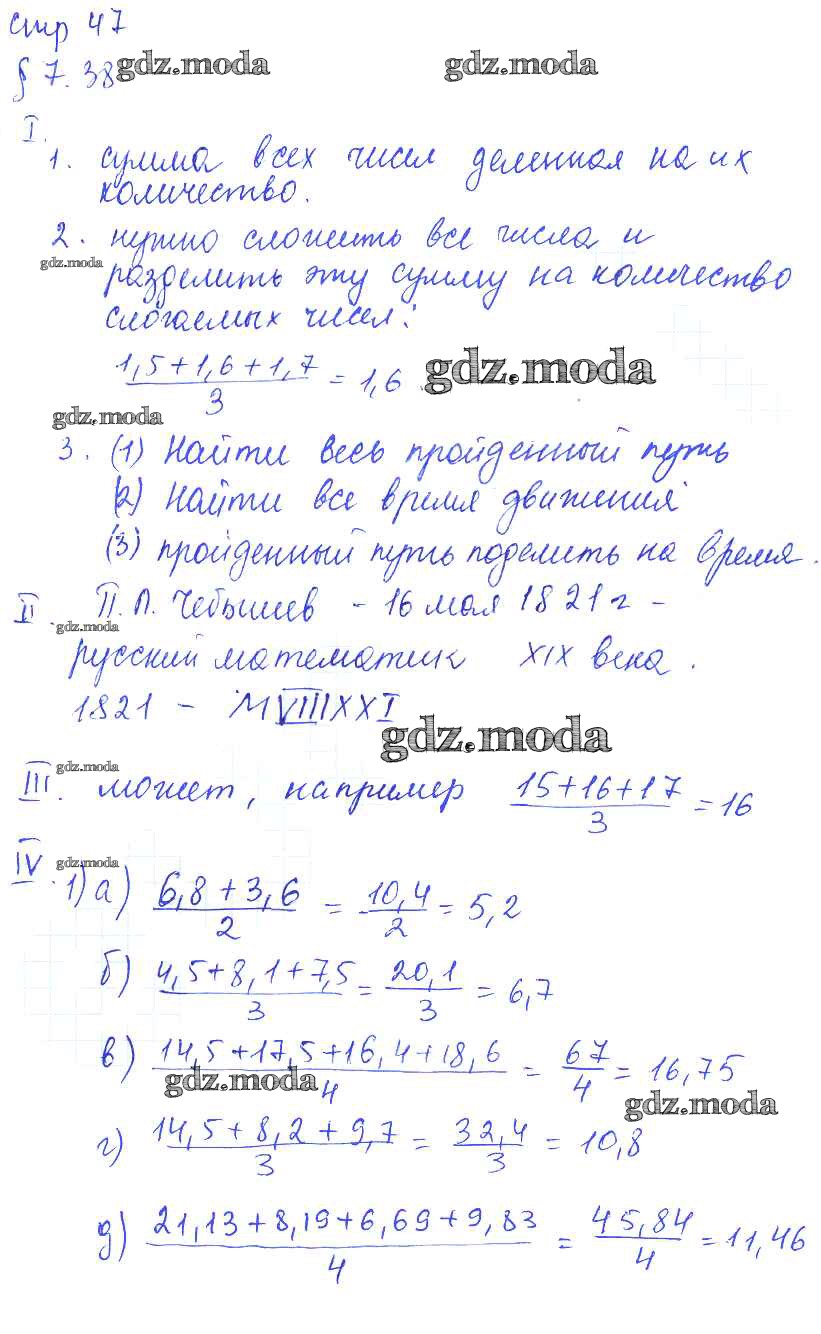 стр 47
§ 7.38 gdz.moda gdz.moda
I.
1. сумма всех чисел деленная на их
количество.
2. нужно сложить все числа и
gdz.moda
разделить эту сумму на количество
слогаемых чисел:
(1,5+1,6+1,7)/3 = 1,6 gdz.moda
gdz.moda
3. (1) Найти весь пройденный путь
(2) Найти все время движения
(3) пройденный путь поделить на время.
II. П.Л. Чебышев - 16 мая 1821 г -
gdz.moda
русский математик XIX века.
1821 - MVIIIXXI
gdz.moda
gdz.moda
III. может, например (15+16+17)/3 = 16
IV. gdz.moda
1) а) (6,8+3,6)/2 = 10,4/2 = 5,2
б) (4,5+8,1+7,5)/3 = 20,1/3 = 6,7
в) (14,5+17,5+16,4+18,6)/4 = 67/4 = 16,75
gdz.moda
gdz.moda
г) (14,5+8,2+9,7)/3 = 32,4/3 = 10,8
д) (21,13+8,19+6,69+9,83)/4 = 45,84/4 = 11,46